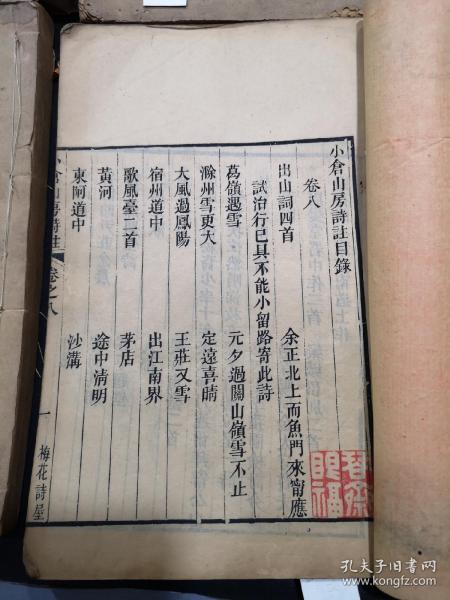 小倉山房詩註目錄
卷八
出山詞四首
余正北上而魚門來甯應
試治行已具不能小留路寄此詩
萬嶺遇雪
元夕過關山嶺雪不止
滁州雪更大
定遠喜晴
大風過鳳陽
王莊又雪
宿州道中
出江南界
歌風臺二首
茅店
黃河
途中清明
東阿道中
沙溝
小倉山房詩註
卷之八
一
梅花詩屋
孔夫子旧书网
www.kongfz.com